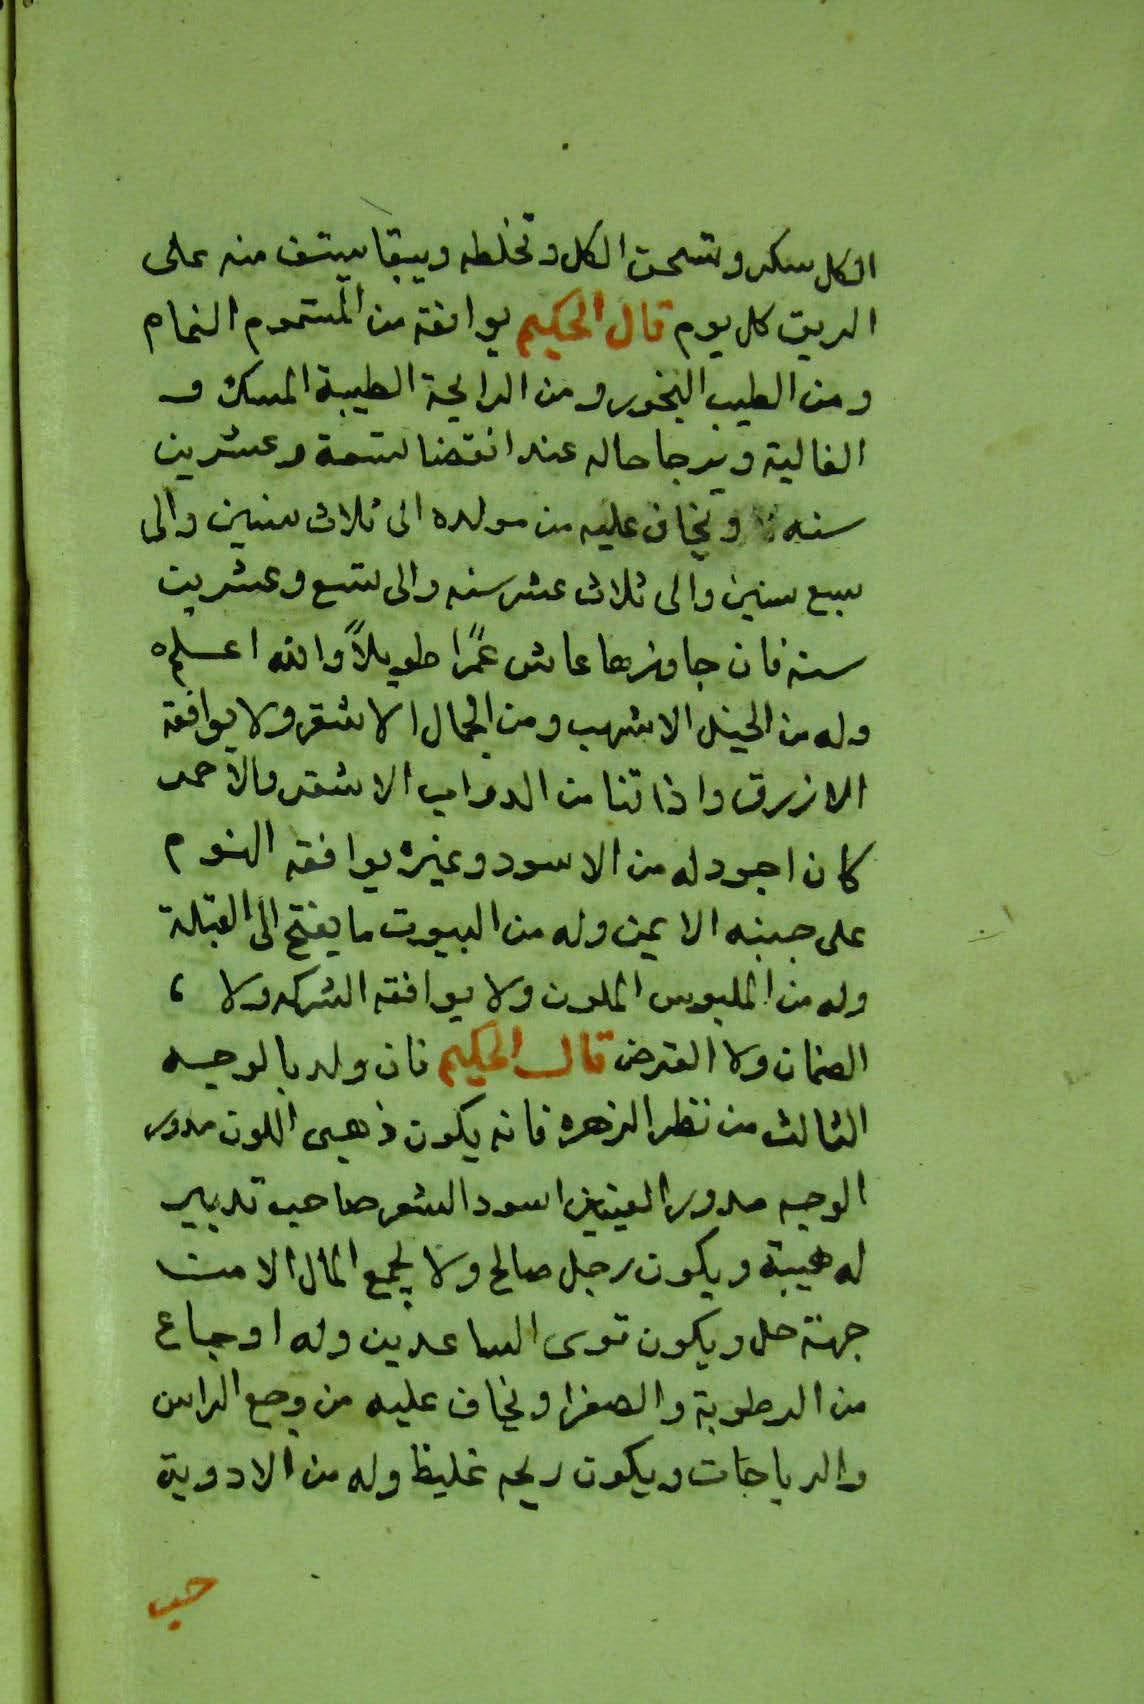 الكل سكر وتسحق الكل وتخلطه ويبقا يستف منه على
الريق كل يوم قال الحكيم يوافقه من المشموم النمام
ومن الطيب البخور ومن الرايحة الطيبة المسك و
الغالية ويرجا حاله عند انقضا تسعة وعشرين
سنه ويخاف عليه من مولده الى ثلاث سنين والى
سبع سنين والى ثلاث عشر سنه والى تسع وعشرين
سنه فان جاوزها عاش عمرًا طويلاً والله اعلم
وله من الخيل الاشهب ومن الجمال الاشقر ولا يوافقه
الازرق واذا قنا من الدواب الاشقر والاحمر
كان اجود له من الاسود وغيره يوافقه النوم
على جنبه الايمن وله من البيوت ما يفتح الى القبلة
وله من الملبوس الملون ولا يوافقه الشركه ولا
الضمان ولا القرض قال الحكيم فان ولد بالوجه
الثالث من نظر الزهره فانه يكون ذهبى اللون مدور
الوجه مدور العينين اسود الشعر صاحب تدبير
له هيبة ويكون رجل صالح ولا يجمع المال الا من
جهة حل ويكون قوى الساعدين وله اوجاع
من الرطوبة والصفرا ويخاف عليه من وجع الراس
والرياحات ويكون ريحه غليظ وله من الادوية
حب